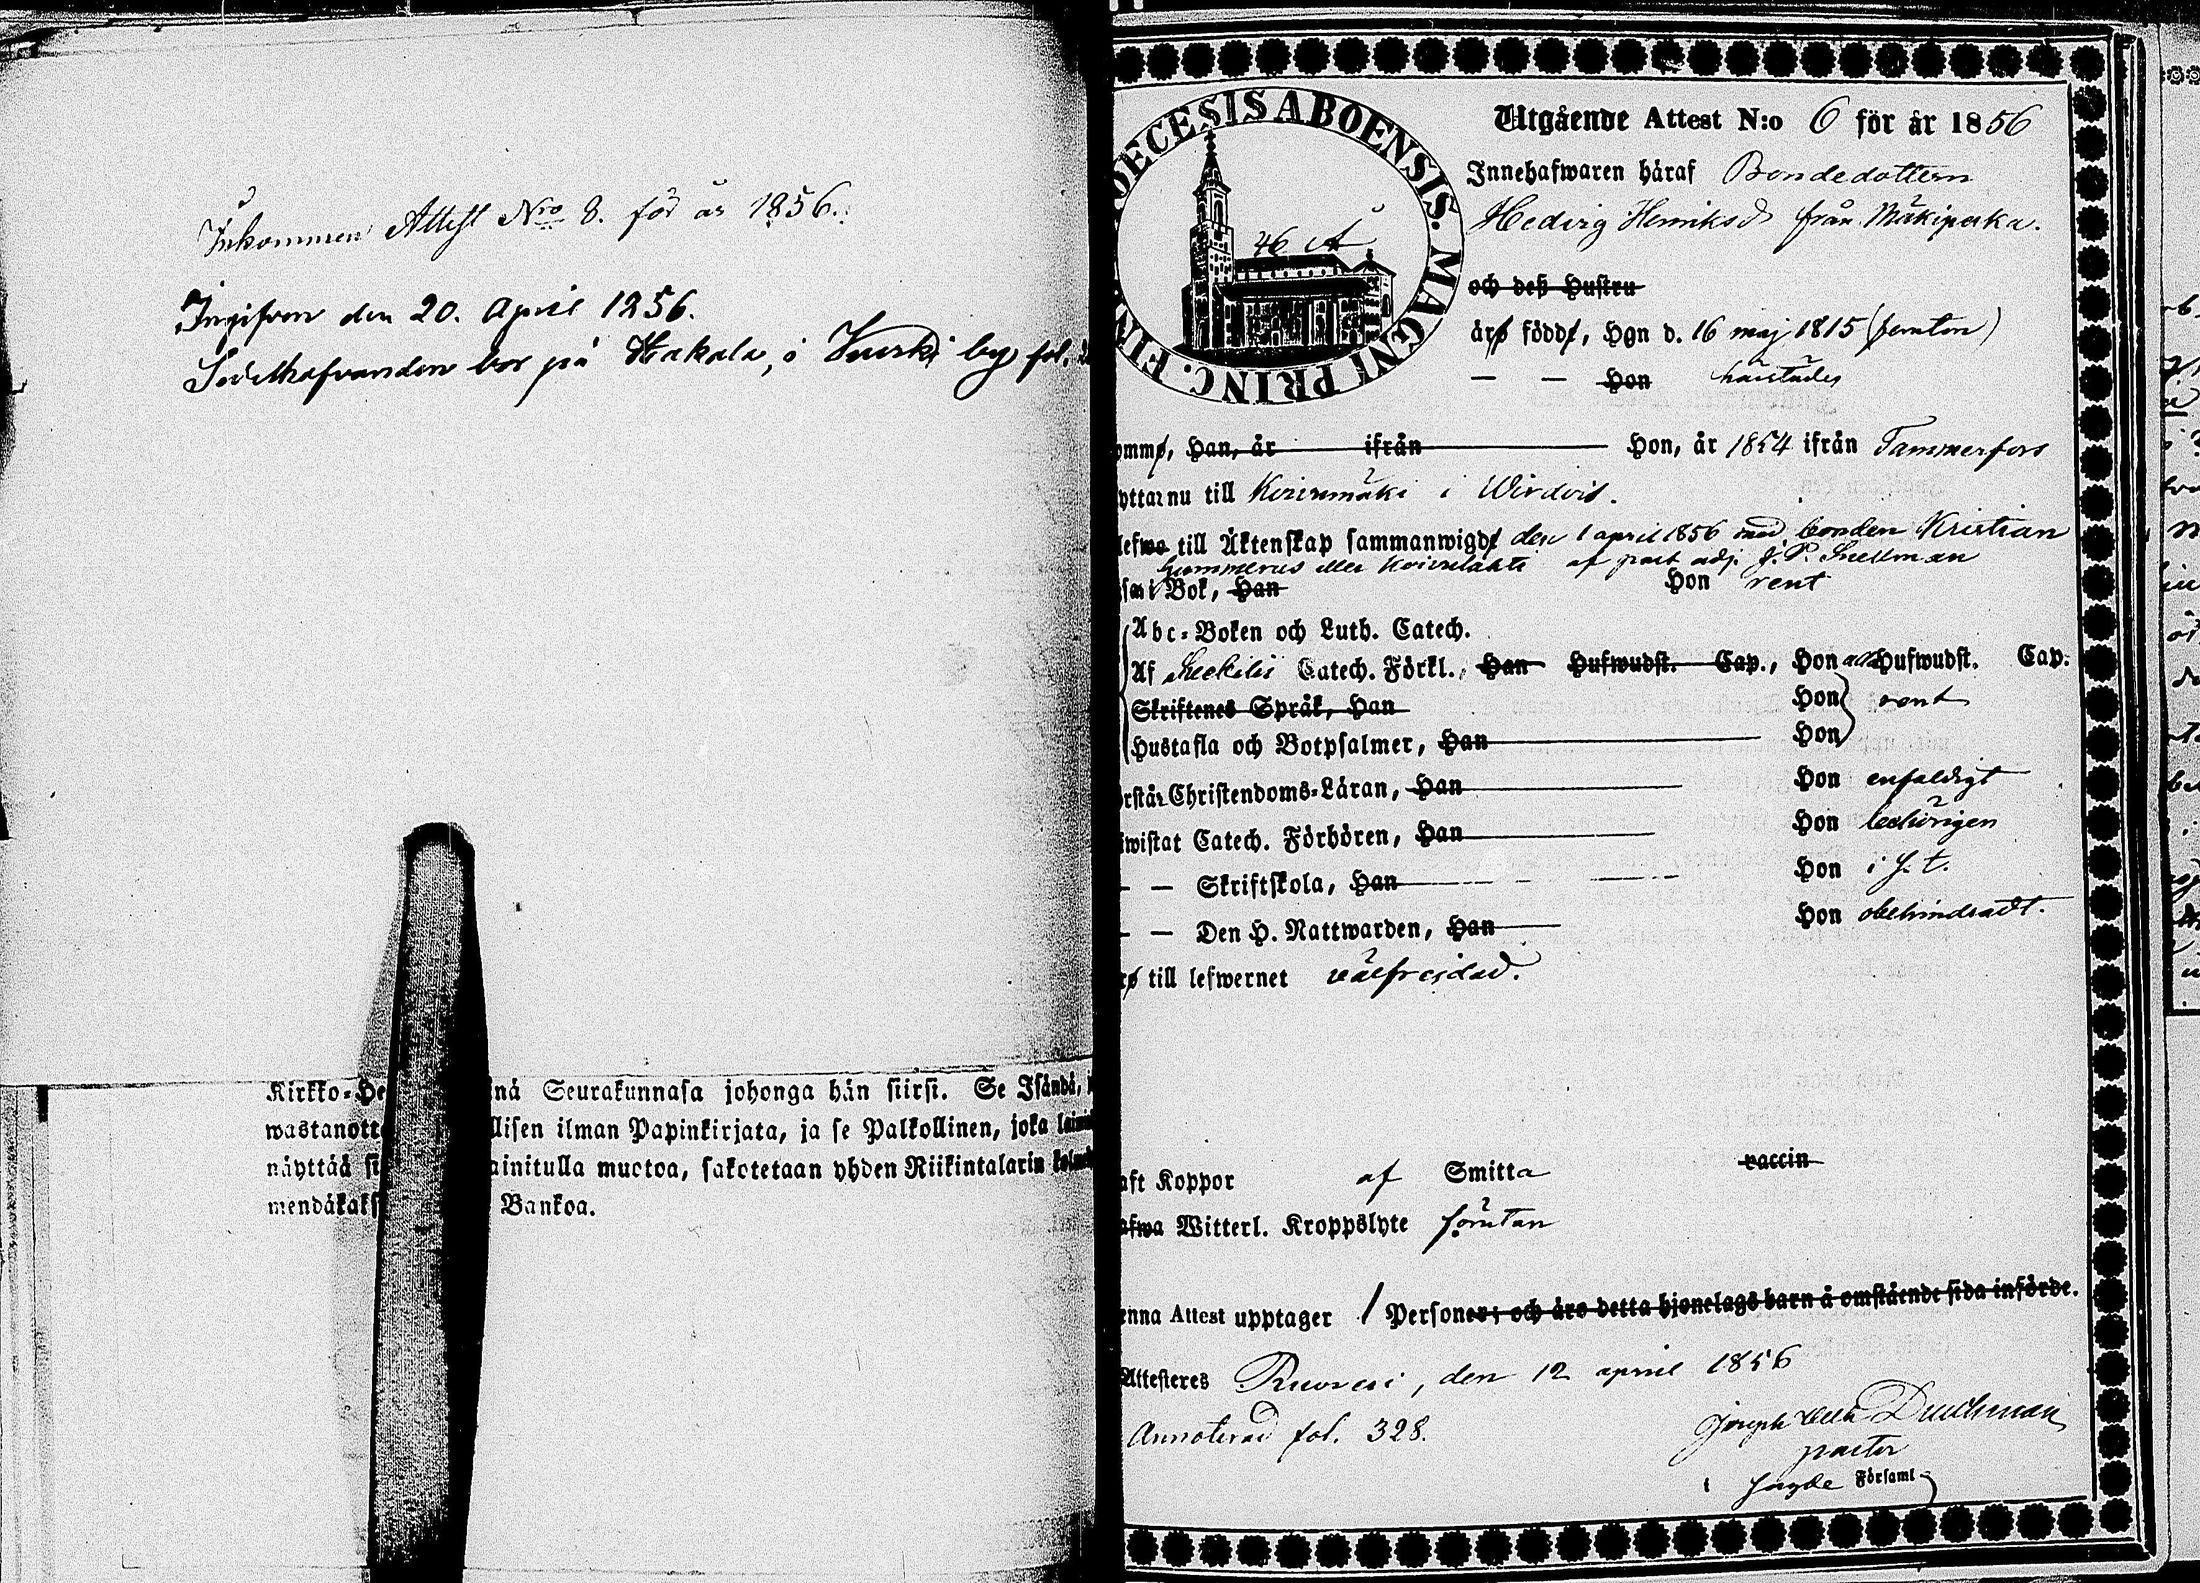 Inkommen Attest Nro 8. för år 1856.
Ingifven den 20. April 1856.
bor på Hakala, i Kurki by fol.
Kirkko=He nä Seurakunnasa johonga hän siirsi. Se Isändä,
wastanotta llisen ilman Papinkirjata, ja se Palkollinen, joka
näyttää si ainitulla muotoa, sakotetaan yhden Riikintalarin
mendäkaks Bankoa.
DIOECESIS ABOENSIS. MAGNI PRINC. FIN
46 A
Utgående Attest N:o 6 för år 1856
Innehafwaren häraf Bondedottern
Hedvig Henriksd från Mäkipirkka.
och deß Hustru
äro född, Hon d. 16 maj 1815 (femton)
— — Hon härstädes
ommo, Han, år ifrån Hon, år 1854 ifrån Tammerfors
yttar nu till i Wirdois.
lefwa till Äktenskap sammanwigde den 1 april 1856 med bonden Kristian
Gummerus eller af past. adj. J. P. Snellman
i Bok, Han Hon rent
Abc=Boken och Luth. Catech.
Af Catech. Förkl., Han Hufwudst. Cap., Hon alla Hufwudst. Cap.
Skriftenes Språk, Han Hon rent
Hustafla och Botpsalmer, Han Hon
rstår Christendoms=Läran, Han Hon enfaldigt
iwistat Catech. Förhören, Han Hon behörigen
— — Skriftskola, Han Hon i s. t.
— — Den H. Nattwarden, Han Hon obehindradt.
ro till lefwernet välfrejdad.
aft Koppor af Smitta vaccin
afwa Witterl. Kroppslyte förutan
enna Attest upptager 1 Personer; och äro detta hjonelags barn å omstående sida införde.
Attesteres Ruovesi, den 12 april 1856
Annoterad fol. 328.
Joseph Wilh Durchman
pastor
i Församl